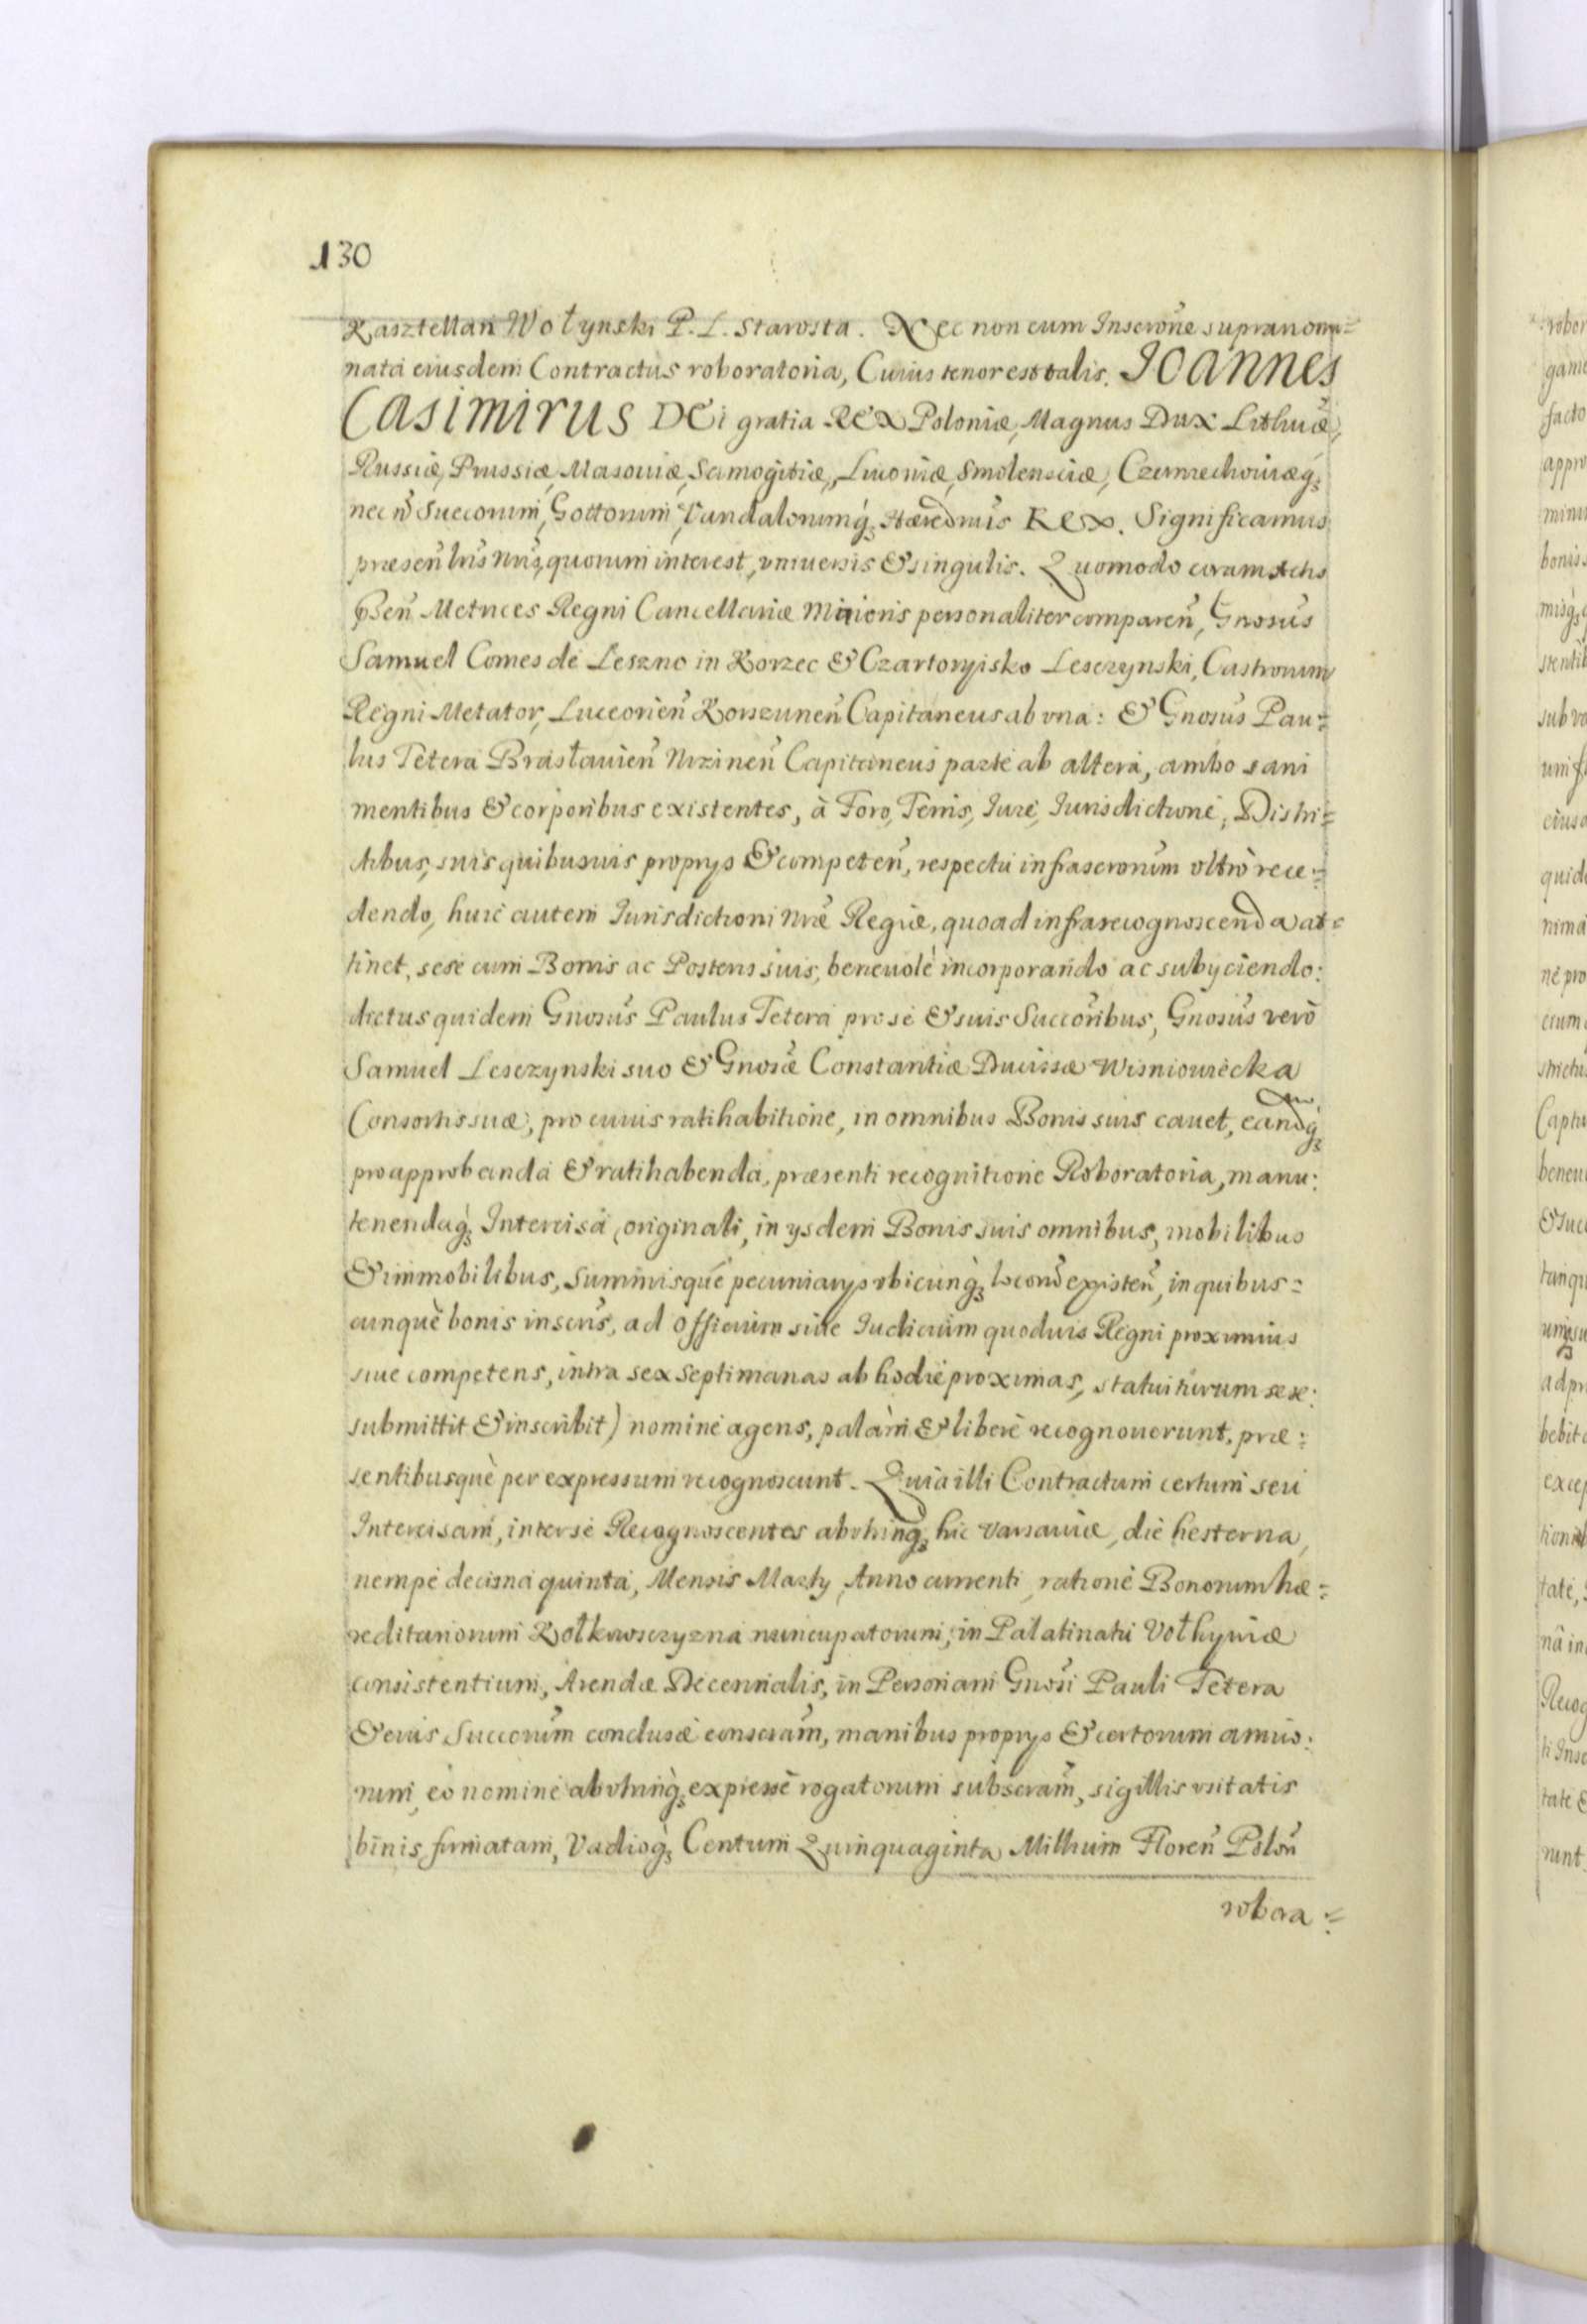 130
Kasztellan Wołynski P. L. Starosta. Nec non cum Inscrõne supranomi=
nata eiusdem Contractus roboratoria, Cuius tenor est talis. JOANNES
CASIMIRUS DEi gratia REX Poloniæ, Magnus Dux Lithuæ,
Russiæ, Prussiæ, Masouiæ, Samogitiæ, Liuoniæ, Smolensciæ, Czerniechouiæq3
nec nõ Suecorum, Gottorum, Vandalorumq3 Hæredrius Rex. Significamus
præsentbus nris, quorum interest, vniuersis & singulis. Quomodo coram Actis
pñsen Metrices Regni Cancellariæ Minioris personaliter comparen, Gnosus
Samuel Comes de Leszno in Korzec & Czartoryisko Lesczynski, Castrorum
Regni Metator, Luceorien Korszunen Capitaneus ab vna: & Gnosus Pau=
lus Tetera Brasłauien Nizinen Capitaneus parte ab altera, ambo sani
mentibus & corporibus existentes, à Foro, Terris, Iure, Iurisdictione, Distri=
ctibus, suis quibusuis proprys & competen, respectu infrascrorum vltrò rece=
dendo, huic autem Iurisdictioni nræ Regiæ, quoad infrarecognoscenda at=
tinet, sese cum Bonis ac Posteris suis, beneuolè incorporando ac subyciendo:
dictus quidem Gnosus Paulus Tetera pro se & suis Succoribus, Gnosus verò
Samuel Lesczynski suo & Gnosæ Constantiæ Ducissæ Wisniowiecka
Consortis suæ, pro cuius ratihabitione, in omnibus Bonis suis cauet, eandq3
pro approbanda & ratihabenda, præsenti recognitione Roboratoria, manu:
tenendaq3 Intercisa originali, in ysdem Bonis suis omnibus, mobilibus
& immobilibus, Summisque pecuniarys vbicunq3 locorũ existen, in quibus=
cunquè bonis inscris, ad Officium siue Iudicium quoduis Regni proximius
siue competens, intra sex septimanas ab hodie proximas, statuiturum sese:
submittit & inscribit) nomine agens, palàm & liberè recognouerunt, præ:
sentibusquè per expressum recognoscunt. Quia illi Contractum certum seu
Intercisam, inter se Recognoscentes abvtrinq3 hic Varsauiæ, die hesterna,
nempe decima quinta, Mensis Marty, Anno currenti, ratione Bonorum hæ=
reditariorum Kołkowsczyzna nuncupatorum, in Palatinatu Vołhyniæ
consistentium, Arendæ Decennalis, in Personam Gnosi Pauli Tetera
& eius Succorum conclusæ conscram, manibus proprys & certorum amico:
rum, eo nomine abvtrinq3 expresse rogatorum subscram, sigillis vsitatis
binis firmatam, Vadioq3 Centum Quinquaginta Millium Floren Polon
robora=